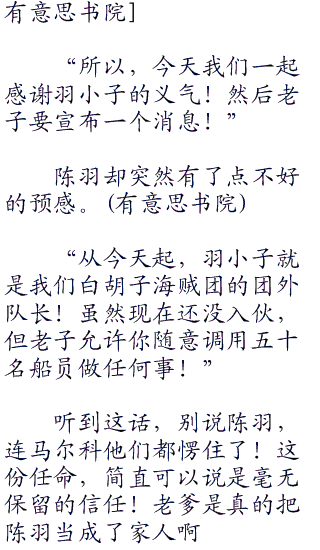 有意思书院]
“所以，今天我们一起
感谢羽小子的义气！然后老
子要宣布一个消息！”
陈羽却突然有了点不好
的预感。(有意思书院)
“从今天起，羽小子就
是我们白胡子海贼团的团外
队长！虽然现在还没入伙，
但老子允许你随意调用五十
名船员做任何事！”
听到这话，别说陈羽，
连马尔科他们都愣住了！这
份任命，简直可以说是毫无
保留的信任！老爹是真的把
陈羽当成了家人啊